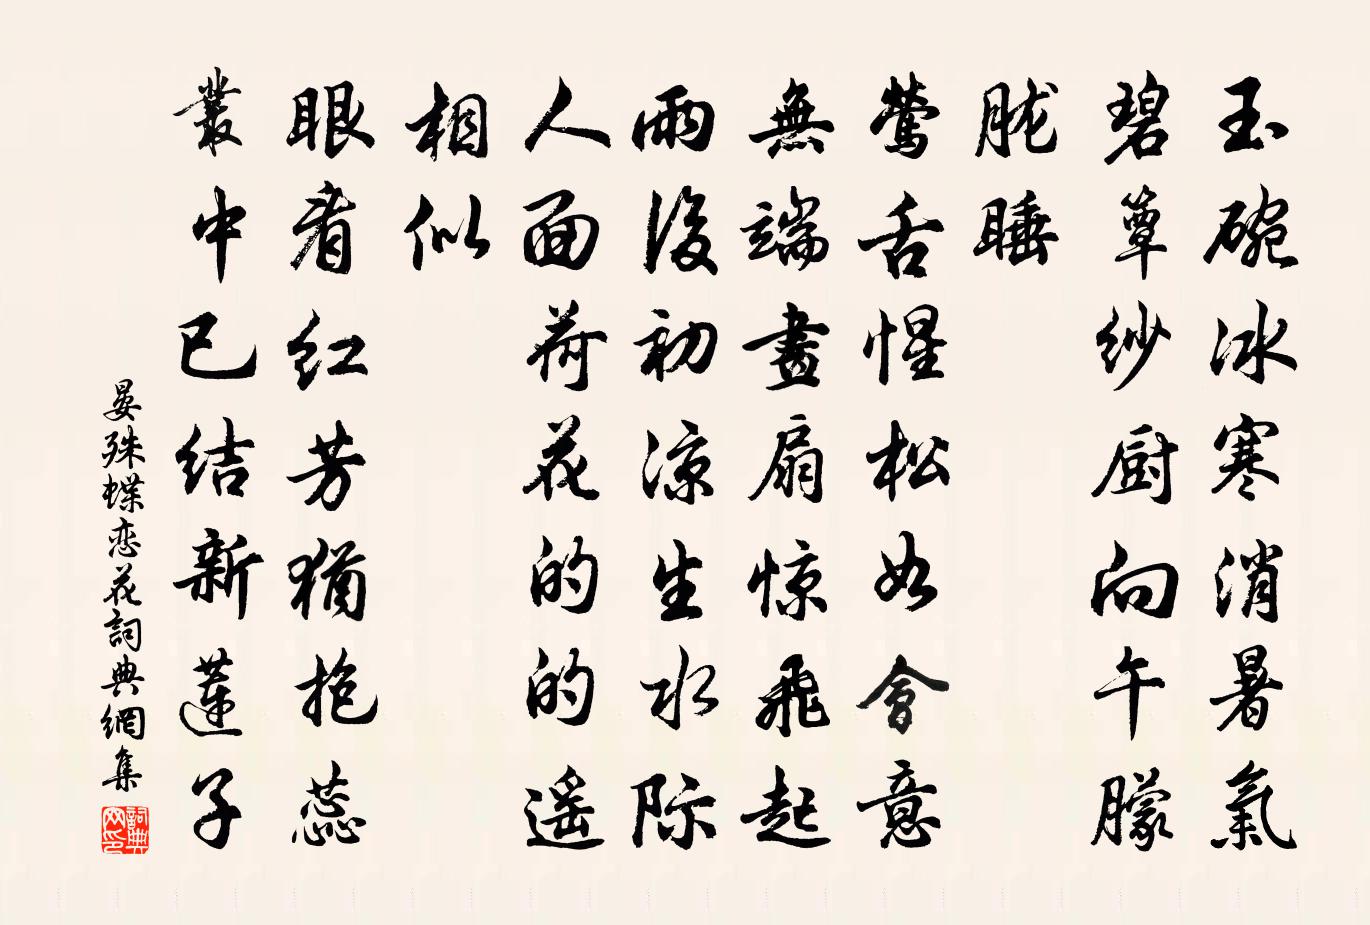 玉碗冰寒消暑氣
碧簟紗厨向午朦
胧睡
鶯舌惺松如會意
無端畫扇惊飛起
雨後初凉生水际
人面荷花的的遥
相似
眼看红芳猶抱蕊
叢中已结新蓮子
晏殊蝶恋花詞典網集
詞典
网印